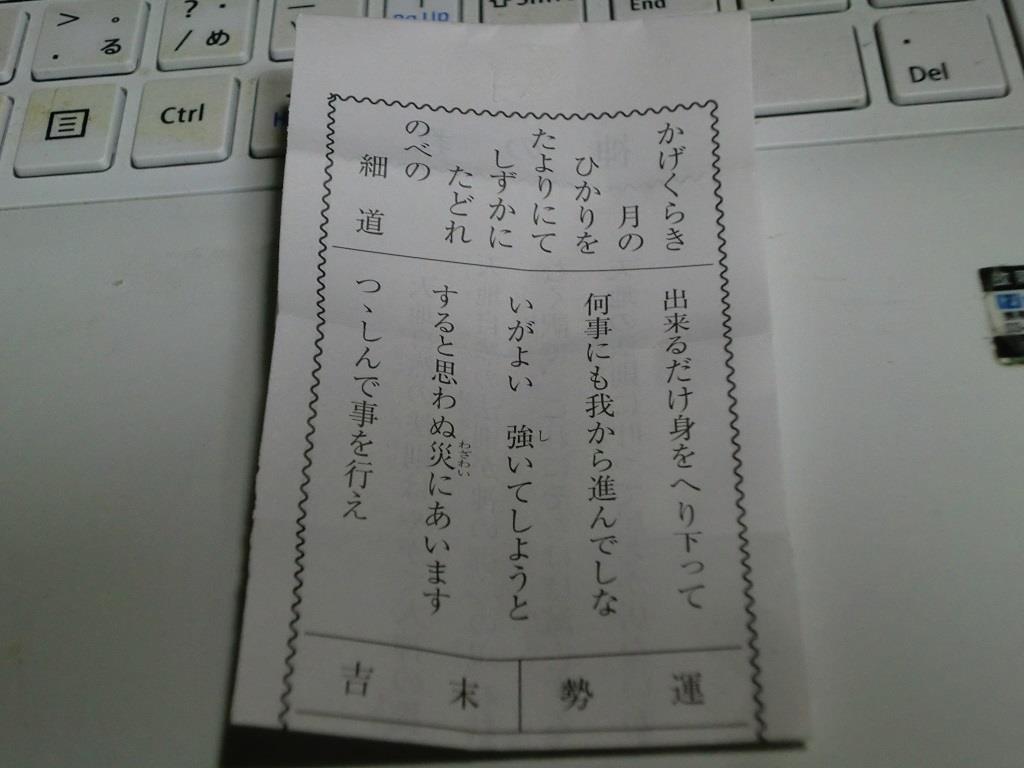 かげくらき
月の
ひかりを
たよりにて
しずかに
たどれ
のべの
細道
出来るだけ身をへり下って
何事にも我から進んでしな
いがよい 強いてしようと
し
すると思わぬ災にあいます
わざわい
つゝしんで事を行え
運勢
末吉
> 。
. る
? ・
/ め
Shift
End
Pg Up
Ctrl
Del